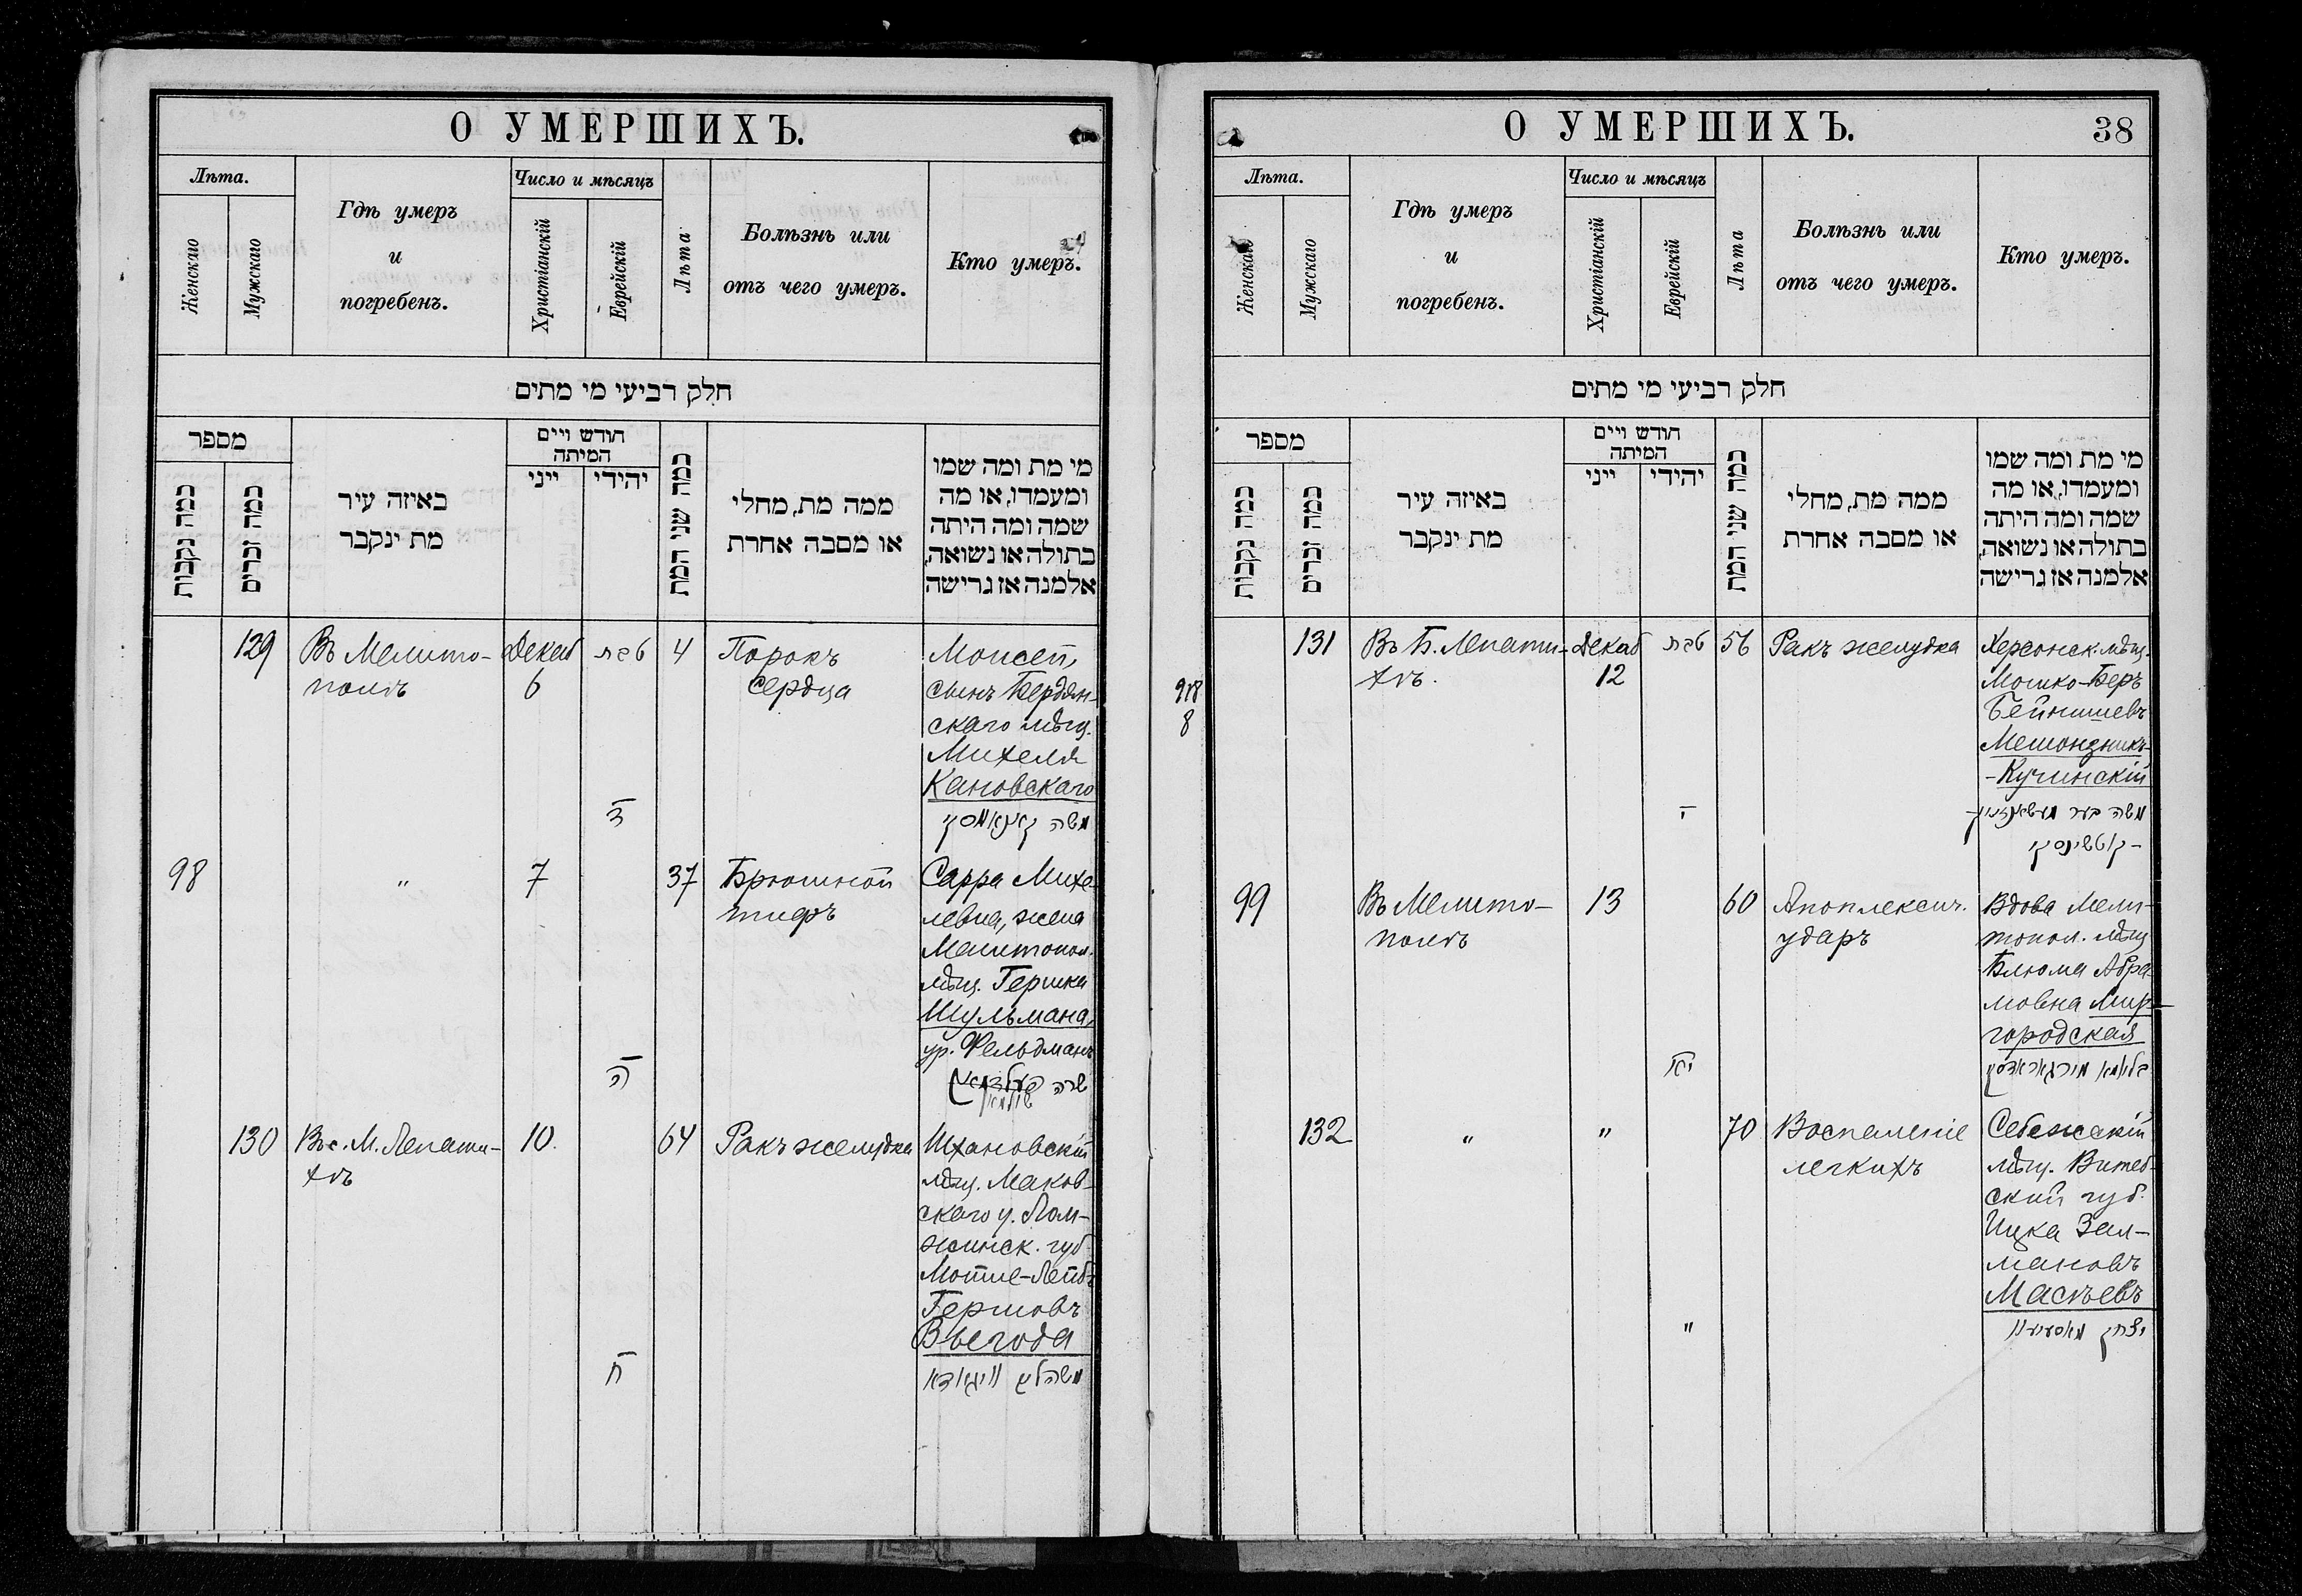 О УМЕРШИХЪ.
Лѣта.
Женскаго
Мужскаго
Гдѣ умеръ
и
погребенъ.
Число и мѣсяцъ
Христіанскій
Еврейскій
Лѣта
Болѣзнь или
отъ чего умеръ.
Кто умеръ.
חלק רביעי מי מתים
מספר
כמה נקבות
כמה זכרים
באיזה עיר
מת ינקבר
חודש ויים
המיתה
ייני
יהידי
כמה שני המת
ממה מת, מחלי
או מסבה אחרת
מי מת ומה שמו
ומעמדו, או מה
שמה ומה היתה
בתולה או נשואה,
אלמנה אז גרישה
129
Въ Мелито-
полѣ
Декаб
6
טבת
ד
4
Порокъ
сердца
Моисей,
сынъ Бердян-
скаго мѣщ.
Михеля
Кановскаго
משה קאנאווסקי
98
"
7
ה
37
Брюшной
тифъ
Сарра Михе-
левна, жена
Мелитопол.
мѣщ. Гершка
Шульмана,
ур. Фельдманъ
שרה פעלדמאן
שולמאן
130
Въ с. М. Лепати-
хѣ
10.
ח
64
Ракъ желудка
мѣщ. Маков-
скаго у. Лом-
жинск. губ.
Мошке-Лейбъ
Гершовъ
Выгода
משה ליב וויגאדא
О УМЕРШИХЪ.
38
Лѣта.
Женскаго
Мужскаго
Гдѣ умеръ
и
погребенъ.
Число и мѣсяцъ
Христіанскій
Еврейскій
Лѣта
Болѣзнь или
отъ чего умеръ.
Кто умеръ.
חלק רביעי מי מתים
מספר
כמה נקבות
כמה זכרים
באיזה עיר
מת ינקבר
חודש ויים
המיתה
ייני
יהידי
כמה שני המת
ממה מת, מחלי
או מסבה אחרת
מי מת ומה שמו
ומעמדו, או מה
שמה ומה היתה
בתולה או נשואה,
אלמנה אז גרישה
131
Въ Б. Лепати-
хѣ.
Декаб
12
טבת
י
56
Ракъ желудка
Херсонск. мѣщ.
Мошко-Беръ
Бейнишевъ
Мешонзникъ-
-Кучинскій
משה בער מעשאנזניק
-קוטשינסקי
99
Въ Мелито-
полѣ
13
יא
60
Апоплексич.
ударъ
Вдова Мели-
топол. мѣщ
Блюма Абра-
мовна Мир-
городская
בלומא מירגאראדסקי
132
"
"
"
70
Воспаленіе
легкихъ
Себежскій
мѣщ. Витеб-
ской губ.
Ицка Зал-
мановъ
Масѣевъ
יצחק מאסייעוו